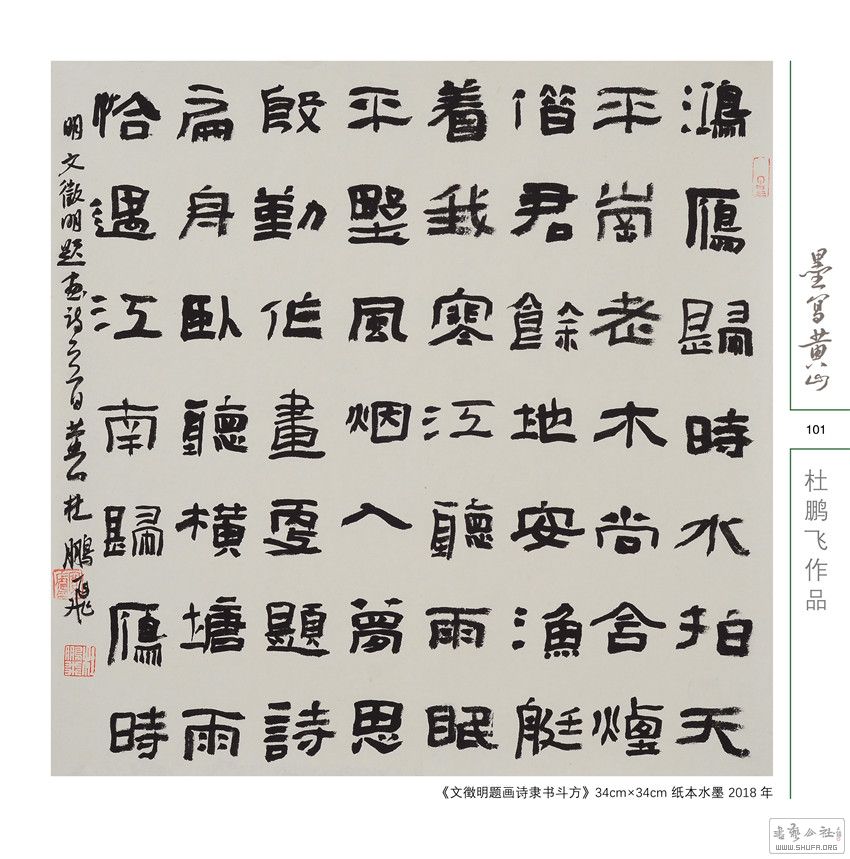 鴻鴈歸時水拍天
平崗老木尚含煙
借君餘地安漁艇
着我寒江聽雨眠
平墅風烟入夢思
殷勤作畫更題詩
扁舟臥聽橫塘雨
恰遇江南歸鴈時
明文徵明題画詩二首黄山杜鵬飛
墨写黄山
101
杜鹏飞作品
《文徵明题画诗隶书斗方》34cm×34cm 纸本水墨 2018 年
WWW.SHUFA.ORG